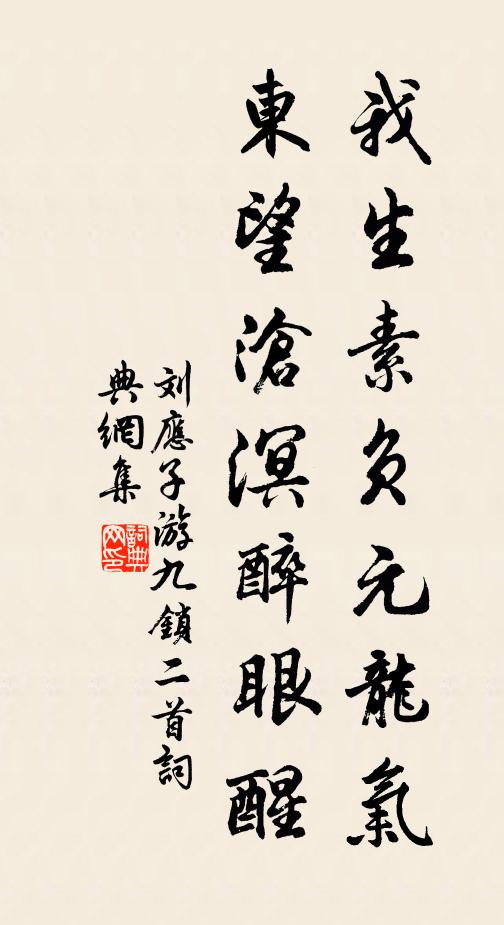 我生素负元龍氣
東望滄溟醉眼醒
刘應子游九鎖二首詞
典網集
詞典網印